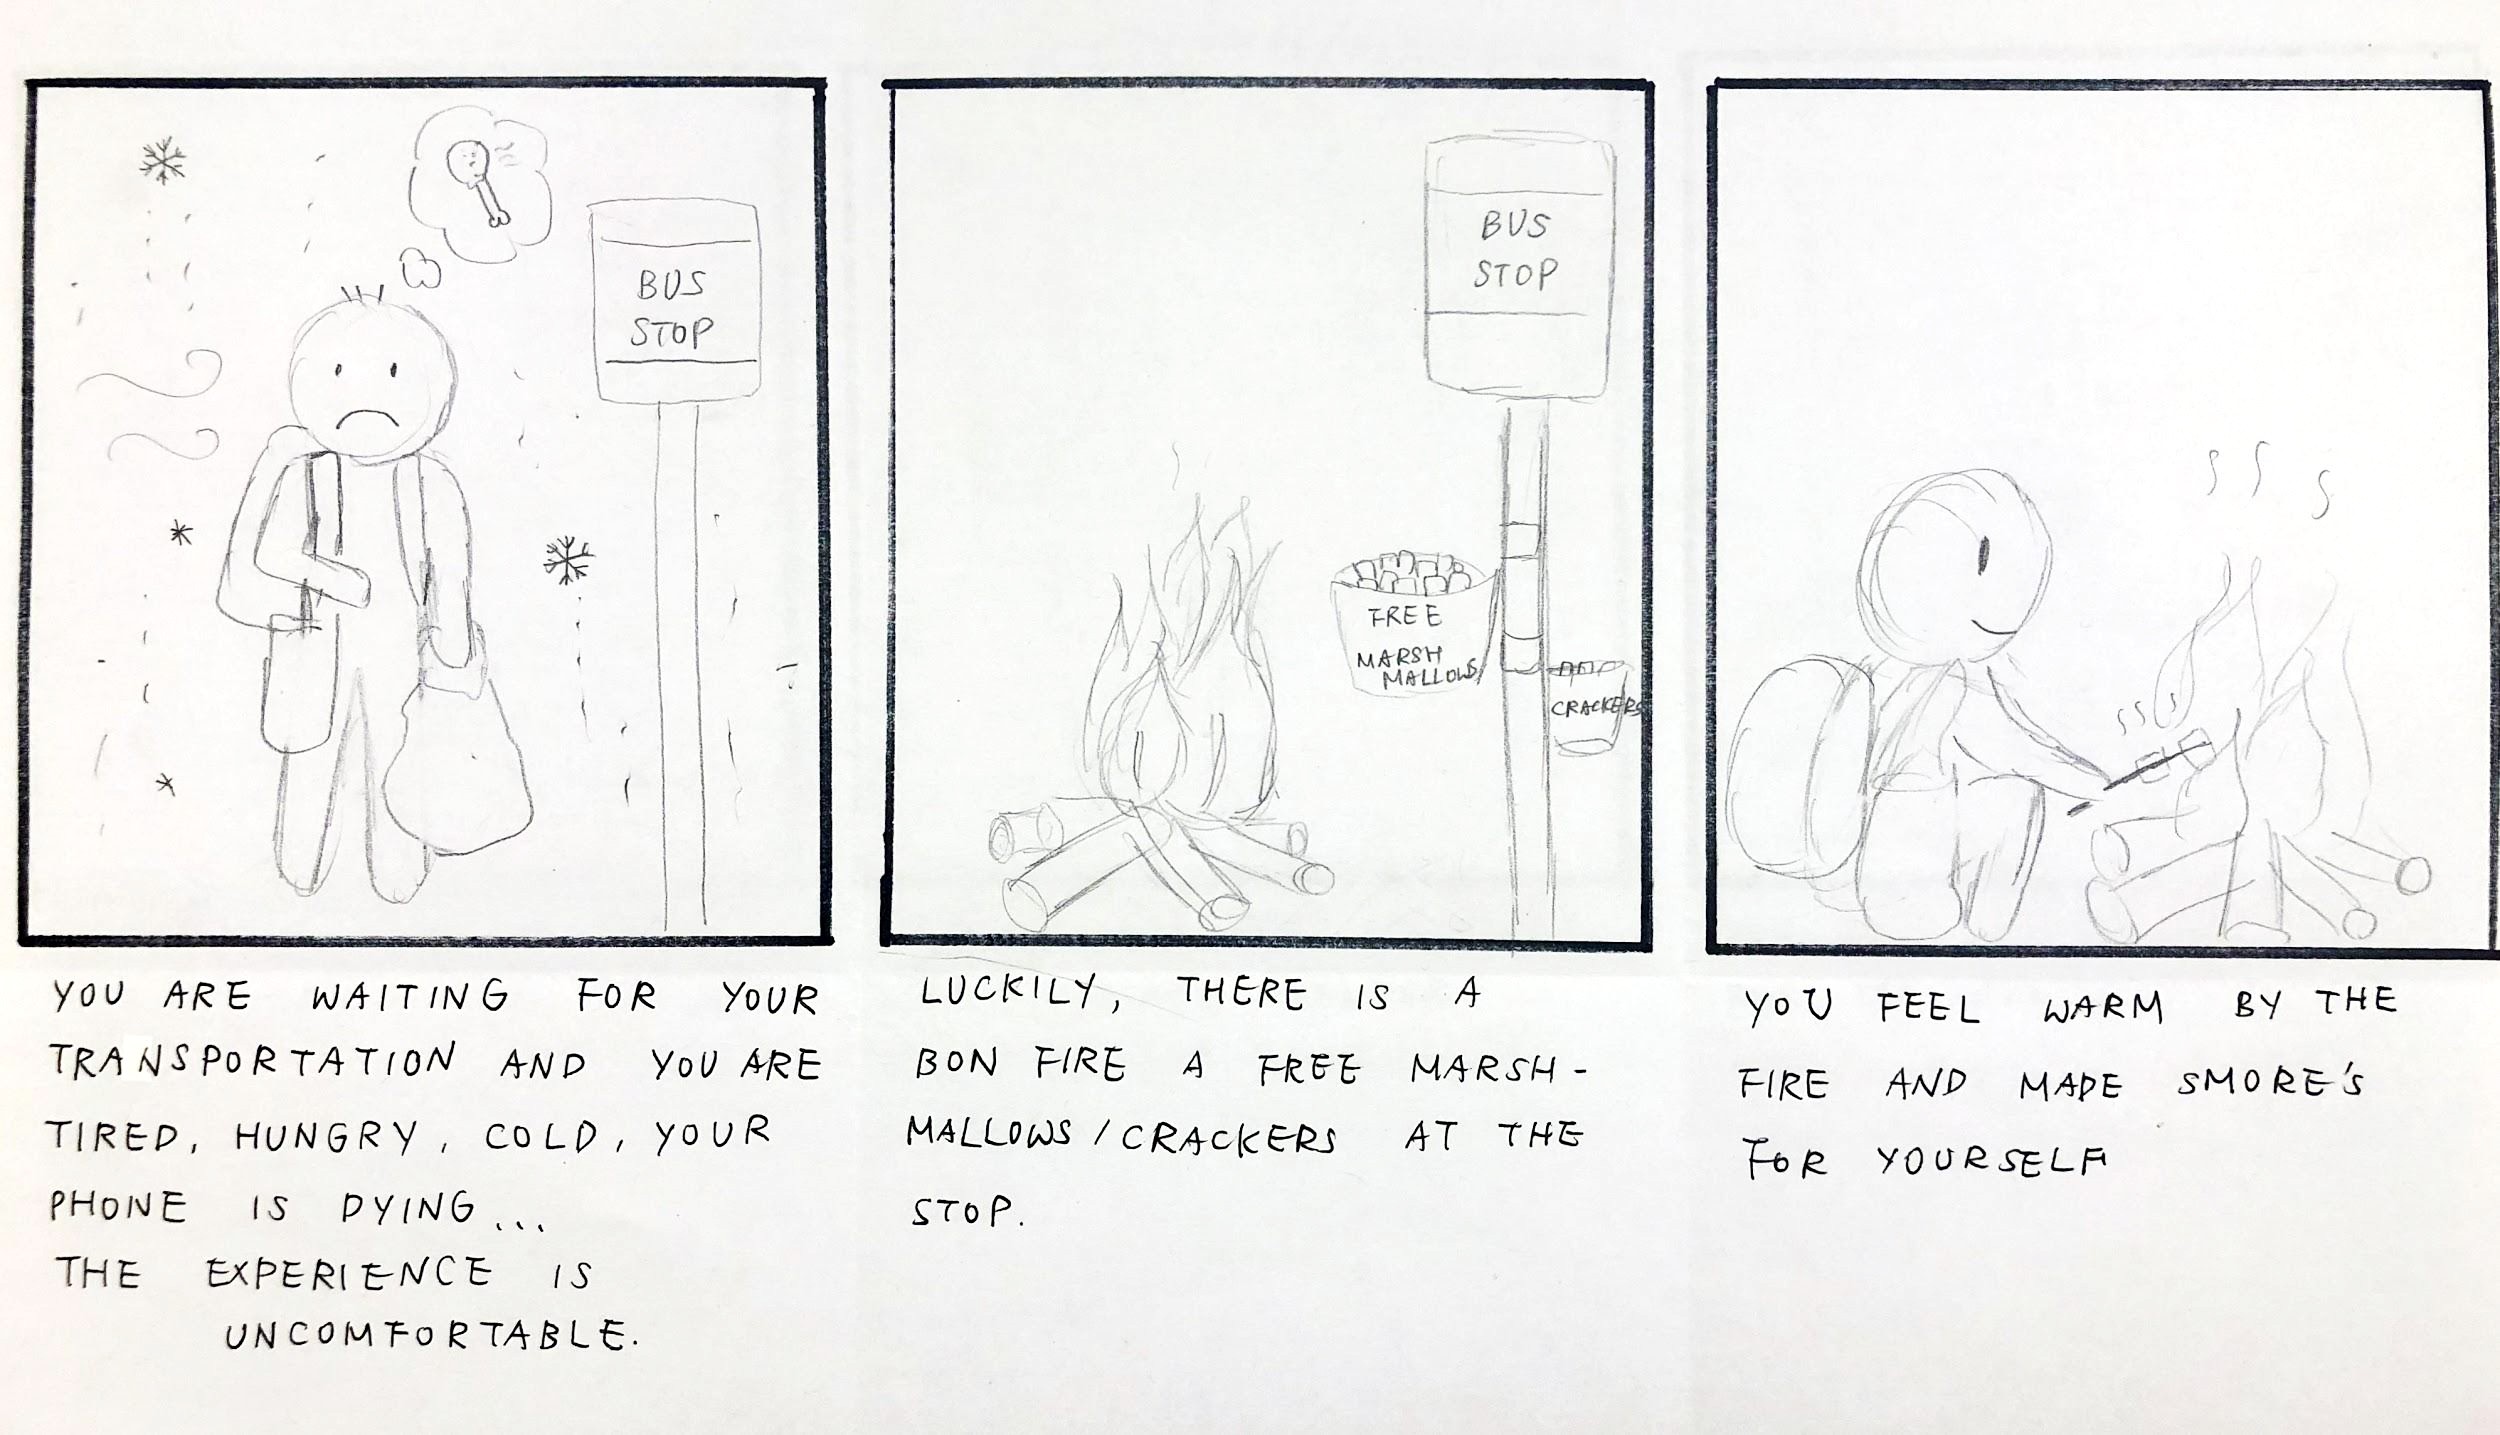 BUS
STOP
YOU ARE WAITING FOR YOUR
TRANSPORTATION AND YOU ARE
TIRED, HUNGRY, COLD, YOUR
PHONE IS DYING...
THE EXPERIENCE IS
UNCOMFORTABLE.
BUS
STOP
FREE
MARSH
MALLOWS
CRACKERS
LUCKILY, THERE IS A
BON FIRE A FREE MARSH-
MALLOWS/CRACKERS AT THE
STOP.
YOU FEEL WARM BY THE
FIRE AND MADE SMORE'S
FOR YOURSELF